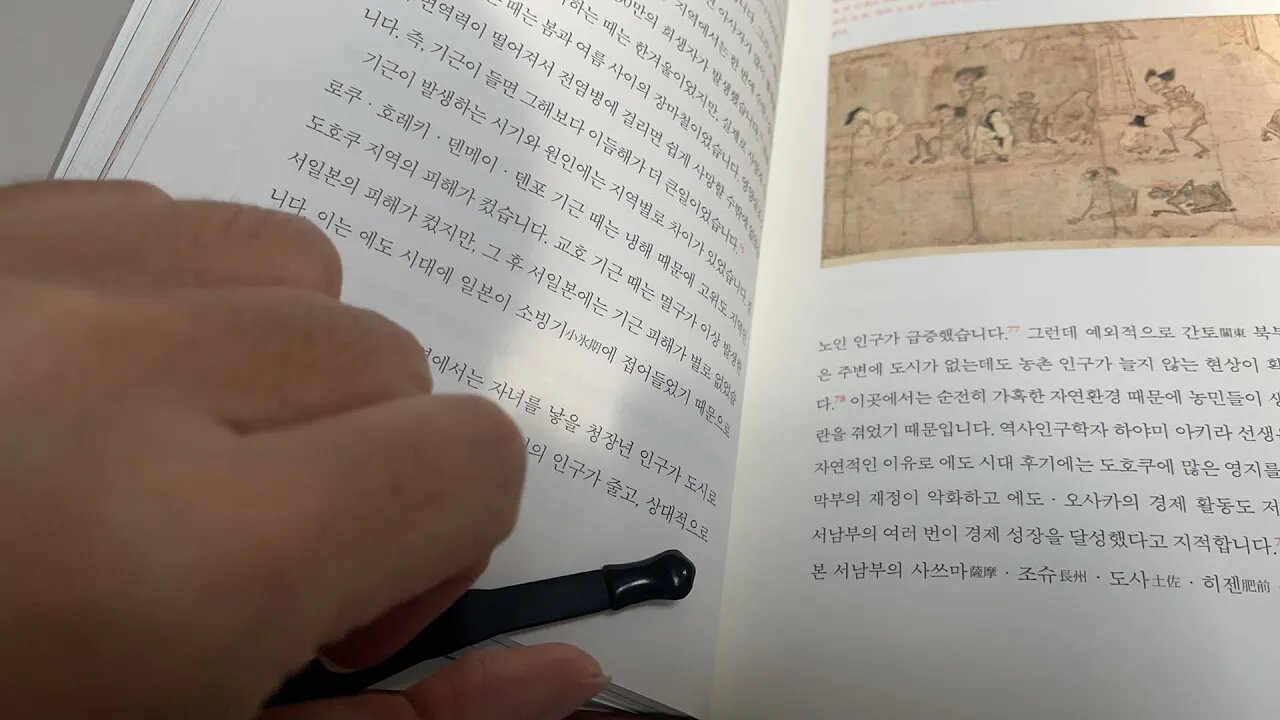 지역에서는 한 번에
30만의 희생자가 발생했습니다.
하는 때는 한겨울이었지만, 실제로
는 때는 봄과 여름 사이의 장마철이었습니다.
면역력이 떨어져서 전염병에 걸리면 쉽게 사망할 수밖에
니다. 즉, 기근이 들면 그해보다 이듬해가 더 큰일이었습니다.
기근이 발생하는 시기와 원인에는 지역별로 차이가 있었습니다.
로쿠 · 호레키 · 덴메이 · 덴포 기근 때는 냉해 때문에 고위도
도호쿠 지역의 피해가 컸습니다. 교호 기근 때는 멸구가 이상 발생한
서일본의 피해가 컸지만, 그 후 서일본에는 기근 피해가 별로 없었습
니다. 이는 에도 시대에 일본이 소빙기小氷期에 접어들었기 때문으로
변에서는 자녀를 낳을 청장년 인구가 도시로
의 인구가 줄고, 상대적으로
노인 인구가 급증했습니다.77 그런데 예외적으로 간토關東 북부
은 주변에 도시가 없는데도 농촌 인구가 늘지 않는 현상이
다.78 이곳에서는 순전히 가혹한 자연환경 때문에 농민들이
란을 겪었기 때문입니다. 역사인구학자 하야미 아키라 선생
자연적인 이유로 에도 시대 후기에는 도호쿠에 많은 영지를
막부의 재정이 악화하고 에도 · 오사카의 경제 활동도 저
서남부의 여러 번이 경제 성장을 달성했다고 지적합니다.
본 서남부의 사쓰마薩摩 · 조슈長州 · 도사土佐 · 히젠肥前